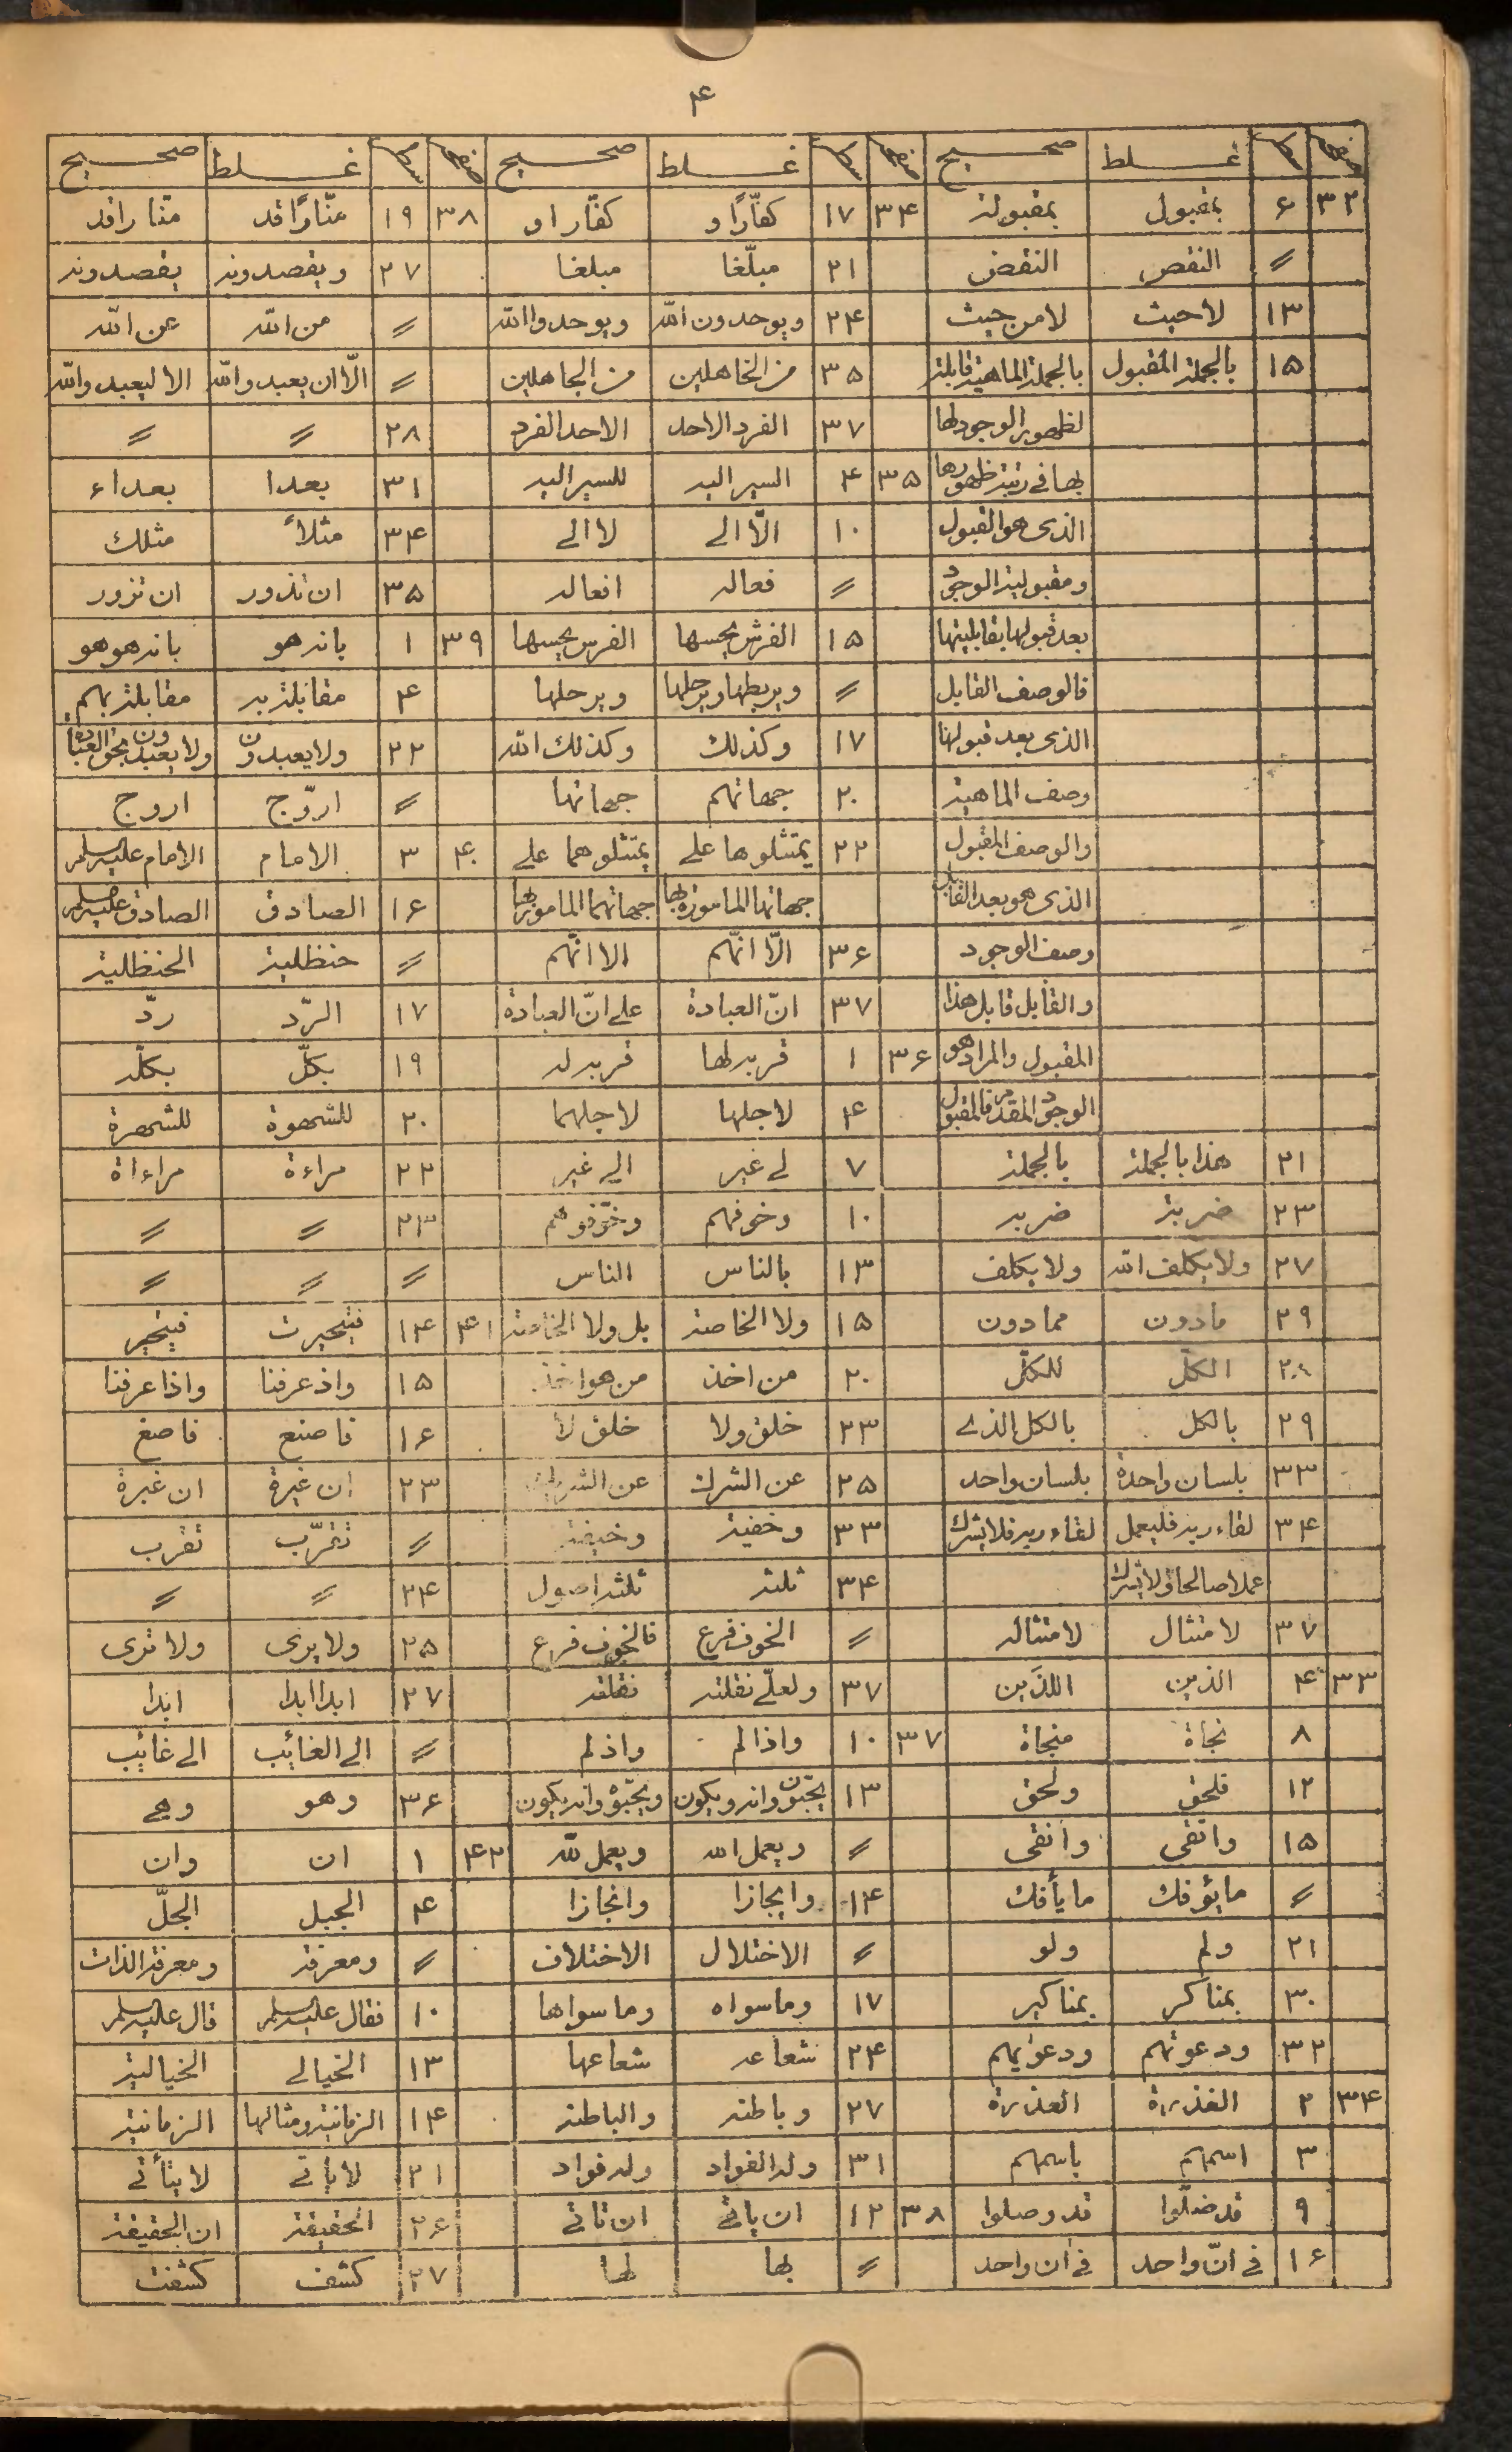 ۴
صفحه سطر غلط صحیح صفحه سطر غلط صحیح صفحه سطر غلط صحیح
۳۲ ۶ بمقبول بمقبولة ۳۴ ۱۷ کفّارًا و کفّارا و ۳۸ ۱۹ منّارًا قد منّا را قد
〃 النقص النقض ۲۱ مبلّغا مبلغا ۲۷ ویقصدونه یقصدونه
۱۳ لاحیث لا من حیث ۲۴ ویوحدون الله ویوحدوا الله 〃 من الله عن الله
۱۵ بالجملة المقبول بالجملة الماهیة قابلة ۳۵ من الخاهلین من الجاهلین 〃 الّا ان یعبدوا الله الا لیعبدوا الله
لظهور الوجود لها ۳۷ الفرد الاحد الاحد الفرد ۲۸ 〃 〃
بها فی رتبة ظهورها ۳۵ ۴ السیر الیه للسیر الیه ۳۱ بعدا بعداء
الذی هو القبول ۱۰ الّا الی لا الی ۳۴ مثلاً مثلك
ومقبولیة الوجود 〃 فعاله افعاله ۳۵ ان تذور ان تزور
بعد قبولها بقابلیتها ۱۵ الفرش یحبسها الفرس یحبسها ۳۹ ۱ بانه هو بانه هو هو
فالوصف القابل 〃 ویربطها ویرحلها ویرحلها ۴ مقابلة به مقابلة بهم
الذی بعد قبولها ۱۷ وکذلك وکذلك الله ۲۲ ولا یعبدون ولا یعبدون بحق العبادة
وصف الماهیة ۲۰ جهاتهم جهاتها 〃 اروّج اروج
والوصف المقبول ۲۲ یمتثلوها علی یمتثلوهما علی ۴۰ ۳ الامام الامام علیه السلم
الذی هو بعد القابل جهاتها المامورة بها جهاتهما المامور بها ۱۶ الصادق الصادق علیه السلم
وصف الوجود ۳۶ الّا انّهم الا انّهم 〃 حنظلیة الحنظلیة
والقابل قابل هذا ۳۷ انّ العبادة علی انّ العبادة ۱۷ الرّد ردّ
المقبول والمراد هو ۳۶ ۱ قربه لها قربه له ۱۹ بکلّ بکلّه
الوجود المقدم فالمقبول ۴ لاجلها لاجلهما ۲۰ للشهوة للشهرة
۲۱ هذا بالجملة بالجملة ۷ لی غیر الی غیر ۲۲ مراءة مراءاة
۲۳ ضربة ضربه ۱۰ وخوفهم وخوّفوهم ۲۳ 〃 〃
۲۷ ولا یکلف الله ولا یکلف ۱۳ بالناس الناس 〃 〃 〃
۲۹ مادون مما دون ۱۵ ولا الخاصة بل ولا الخاصة ۴۱ ۱۴ فیتحیرت فیتحیر
۲۸ الکلّ للکلّ ۲۰ من اخذ من هو اخذ ۱۵ واذ عرفنا واذا عرفنا
۲۹ بالکل بالکل الذی ۲۳ خلق ولا خلق لا ۱۶ فاصنع فاصغ
۳۳ بلسان واحدة بلسان واحد ۲۵ عن الشرك ۲۳ ان غیرة ان غیرة
۳۴ لقاء ربه فلیعمل لقاء ربه فلا یشرك ۳۳ وخفیة وخیفة 〃 تقرّب تقرب
عملا صالحا ولا یشرك ۳۴ ثلثة ثلثة اصول ۲۴ 〃 〃
۳۷ لامتثال لامتثاله 〃 الخوف فرع فالخوف فرع ۲۵ ولا یری ولا تری
۳۳ ۴ الذین اللذَین ۳۷ ولعلّی نقلته نقلته ۲۷ ابدا ابدا ابدا
۸ نجاة منجاة ۳۷ ۱۰ واذا لم واذ لم 〃 الی الغائب الی غائب
۱۲ فلحق ولحق ۱۳ یحبّون وانه ویکون ویحبّوه وانه یکون ۳۶ وهو وهی
۱۵ واتقی وانقی 〃 ویعمل الله ویعمل لله ۴۲ ۱ ان وان
〃 ما یؤفك ما یأفك ۱۴ وایجازا وانجازا ۴ الجبل الجلّ
۲۱ ولم ولو 〃 الاختلال الاختلاف 〃 ومعرفة ومعرفة الذات
۳۰ بمناکر بمناکیر ۱۷ وما سواه وما سواها ۱۰ فقال علیه السلم قال علیه السلم
۳۲ ودعوتهم ودعویهم ۲۴ شعاعه شعاعها ۱۳ الخیالی الخیالیة
۳۴ ۲ الغذرة العذرة ۲۷ وباطنة والباطنة ۱۴ الزمانیة ومثالها الزمانیة
۳ اسمهم باسمهم ۳۱ وله الفواد وله فواد ۲۱ لا یأتی لا یتأتی
۹ قد ضلّوا قد وصلوا ۳۸ ۱۲ ان یاتی ان تاتی ۲۶ الحقیقة ان الحقیقة
۱۶ فی انّ واحد فی ان واحد 〃 بها لها ۲۷ کشف کشفت